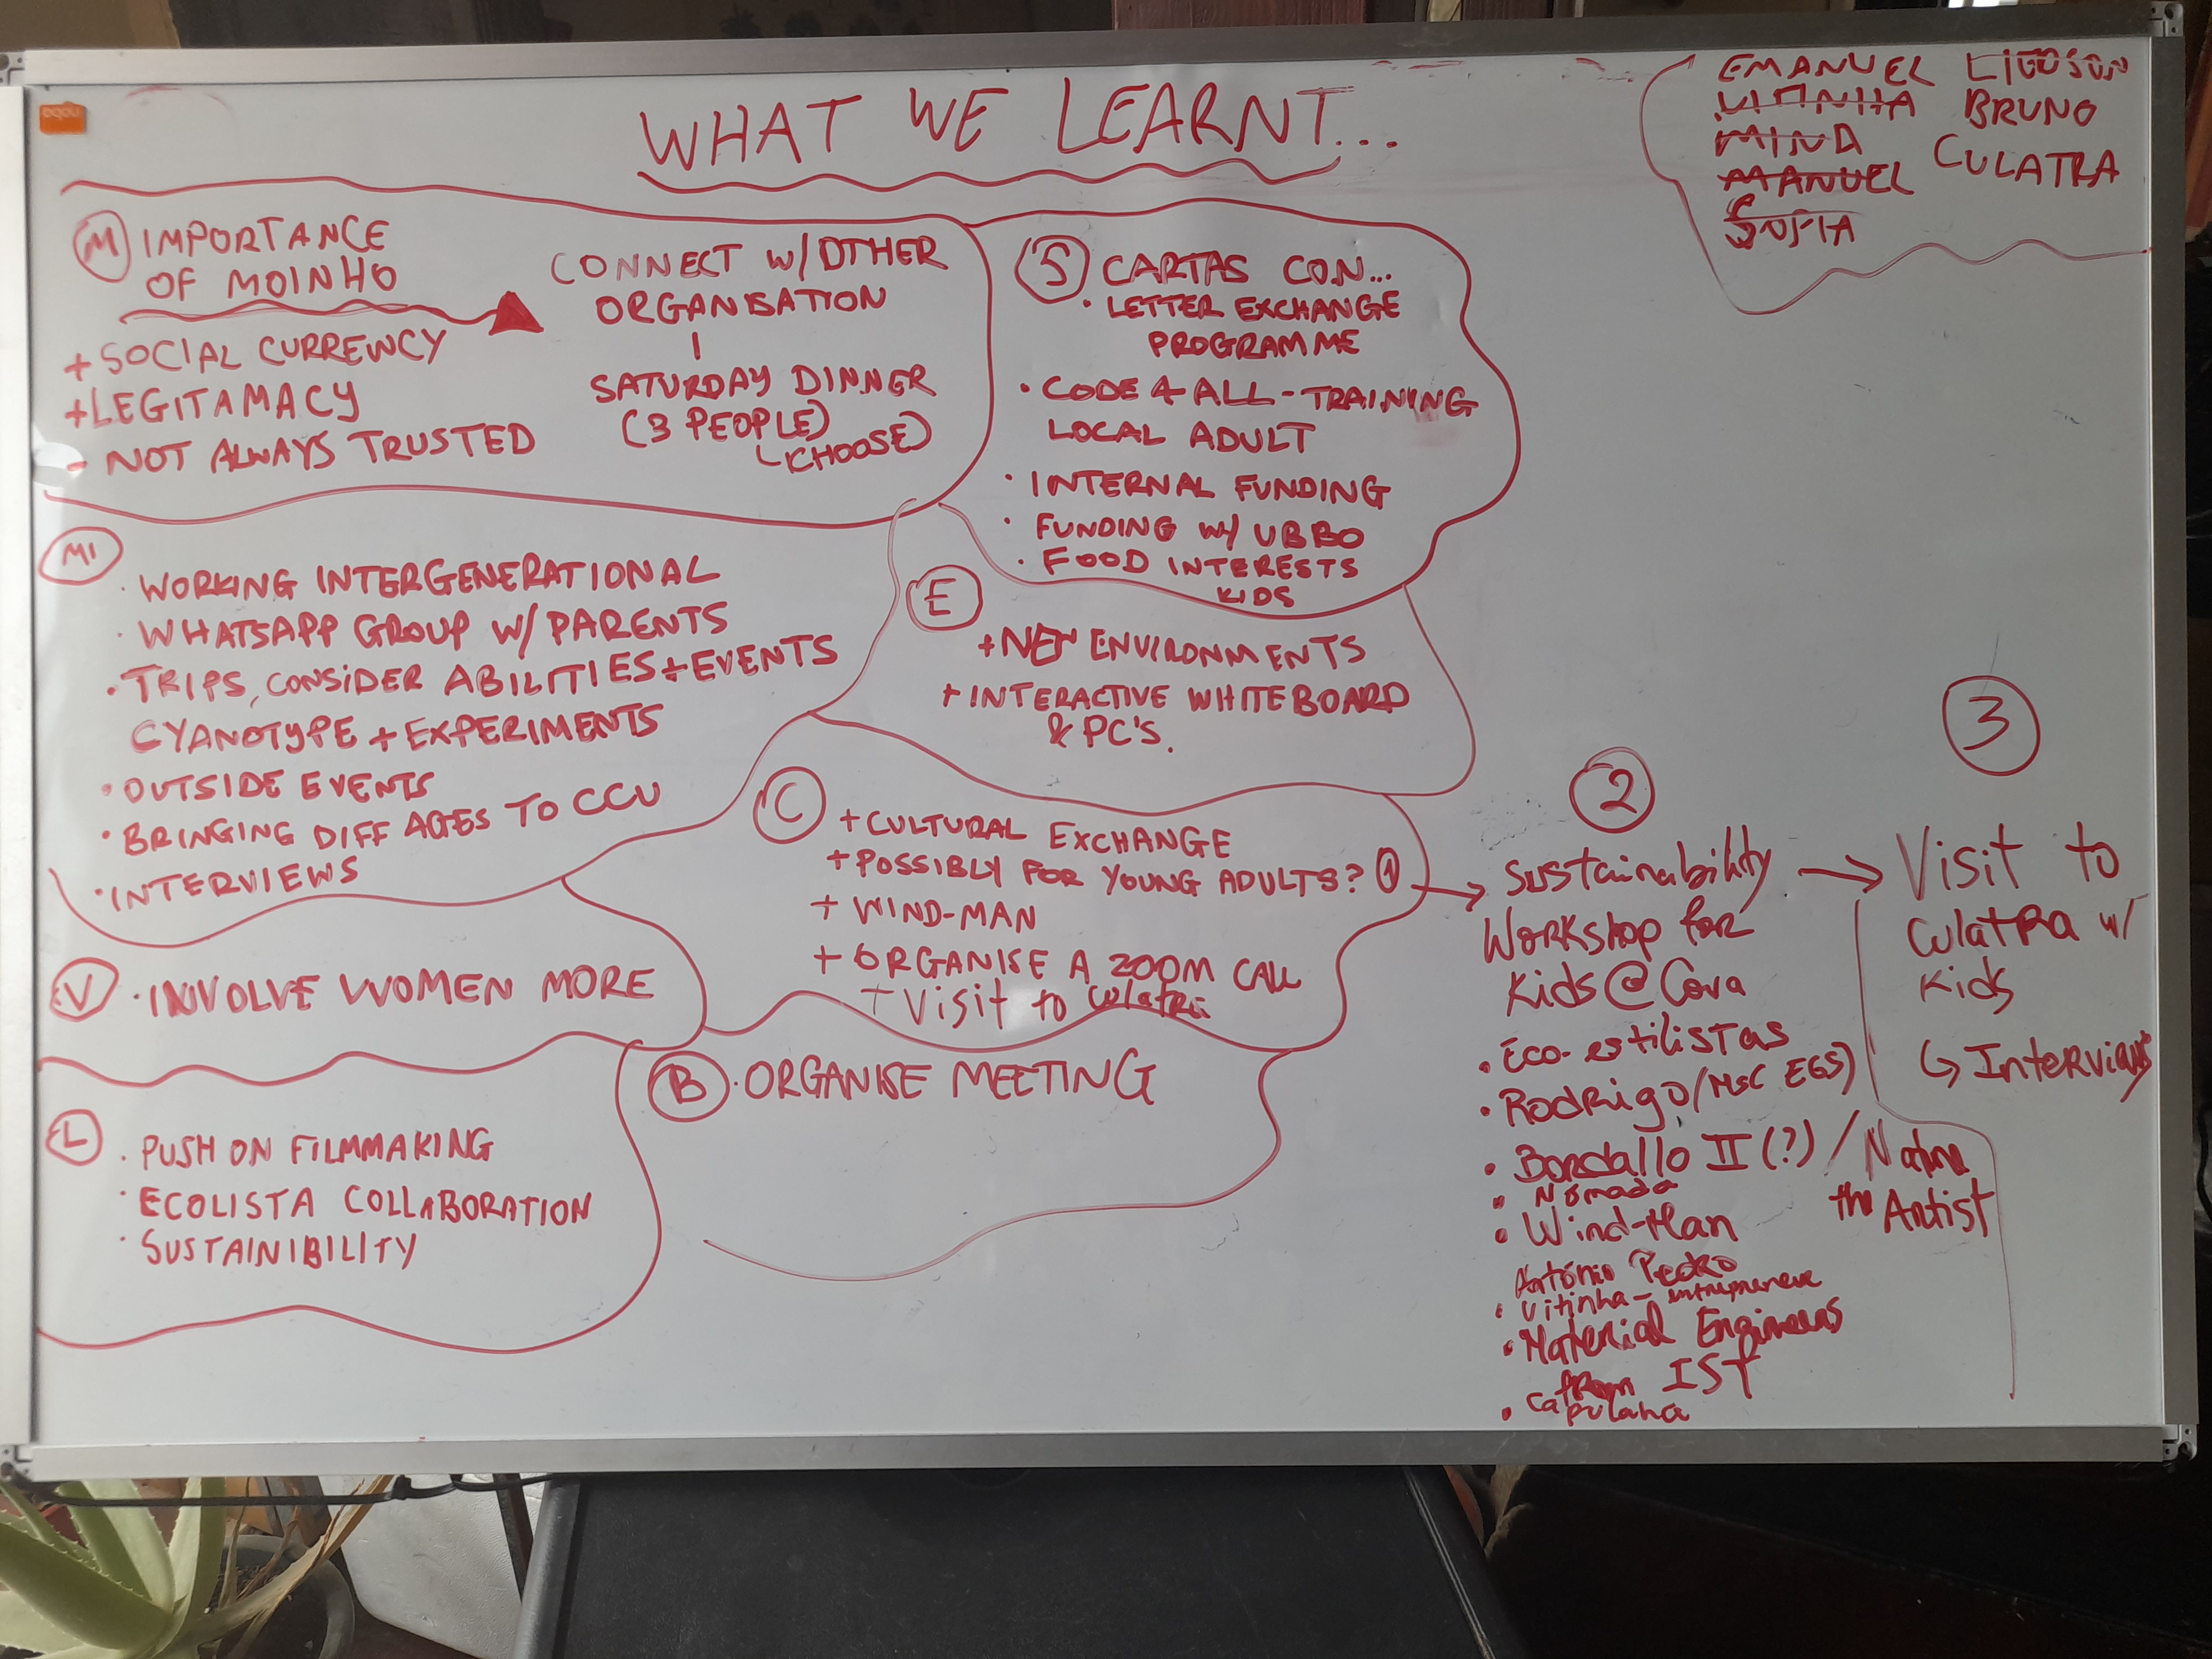 WHAT WE LEARNT...
EMANUEL
VITINHA
MINA
MANUEL
SOFIA
BRUNO
CULATRA
M
IMPORTANCE
OF MOINHO
+ SOCIAL CURRENCY
+ LEGITAMACY
- NOT ALWAYS TRUSTED
CONNECT W/ OTHER
ORGANISATION
SATURDAY DINNER
(3 PEOPLE)
CHOOSE)
S
CARTAS CON...
• LETTER EXCHANGE
PROGRAMME
• CODE 4 ALL - TRAINING
LOCAL ADULT
• INTERNAL FUNDING
• FUNDING W/ UBBO
• FOOD INTERESTS
KIDS
MI
• WORKING INTERGENERATIONAL
• WHATSAPP GROUP W/ PARENTS
• TRIPS, CONSIDER ABILITIES + EVENTS
CYANOTYPE + EXPERIMENTS
• OUTSIDE EVENTS
• BRINGING DIFF AGES TO CCU
• INTERVIEWS
E
+ NEW ENVIRONMENTS
+ INTERACTIVE WHITEBOARD
& PC'S.
C
+ CULTURAL EXCHANGE
+ POSSIBLY FOR YOUNG ADULTS? 1
+ WIND-MAN
+ ORGANISE A ZOOM CALL
+ Visit to Culatra
V
• INVOLVE WOMEN MORE
B
• ORGANISE MEETING
L
• PUSH ON FILMMAKING
• ECOLISTA COLLABORATION
• SUSTAINIBILITY
2
Sustainability
Workshop for
Kids @ Cova
• Eco-estilistas
• Rodrigo/(MSC EGS)
• Bordallo II (?) /
the Artist
• Nomada
• Wind-Man
António Pedro
• Vitinha -
• Material Engineers
from IST
• Capulana
3
Visit to
Culatra w/
Kids
↳ Interviews